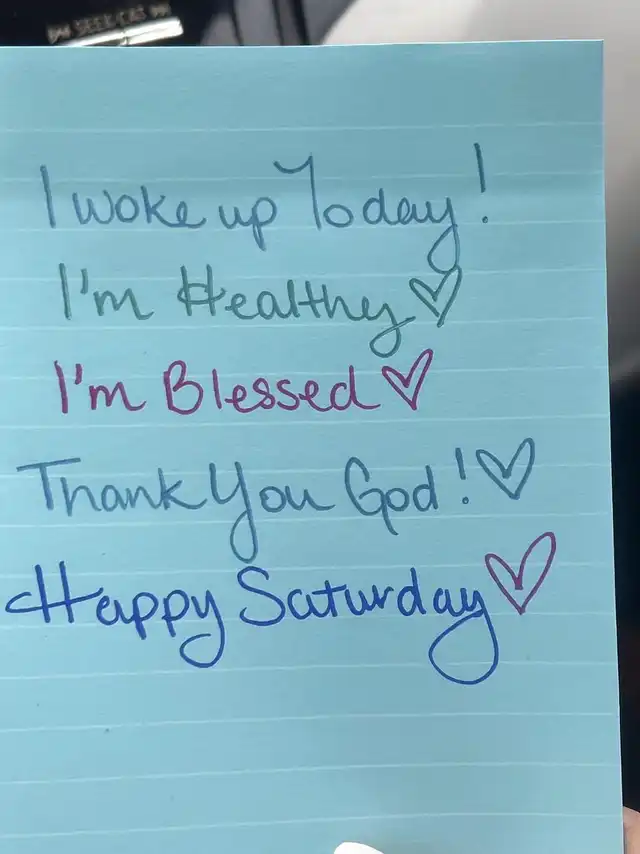 I woke up Today!
I'm Healthy♡
I'm Blessed♡
Thank You God!♡
Happy Saturday♡